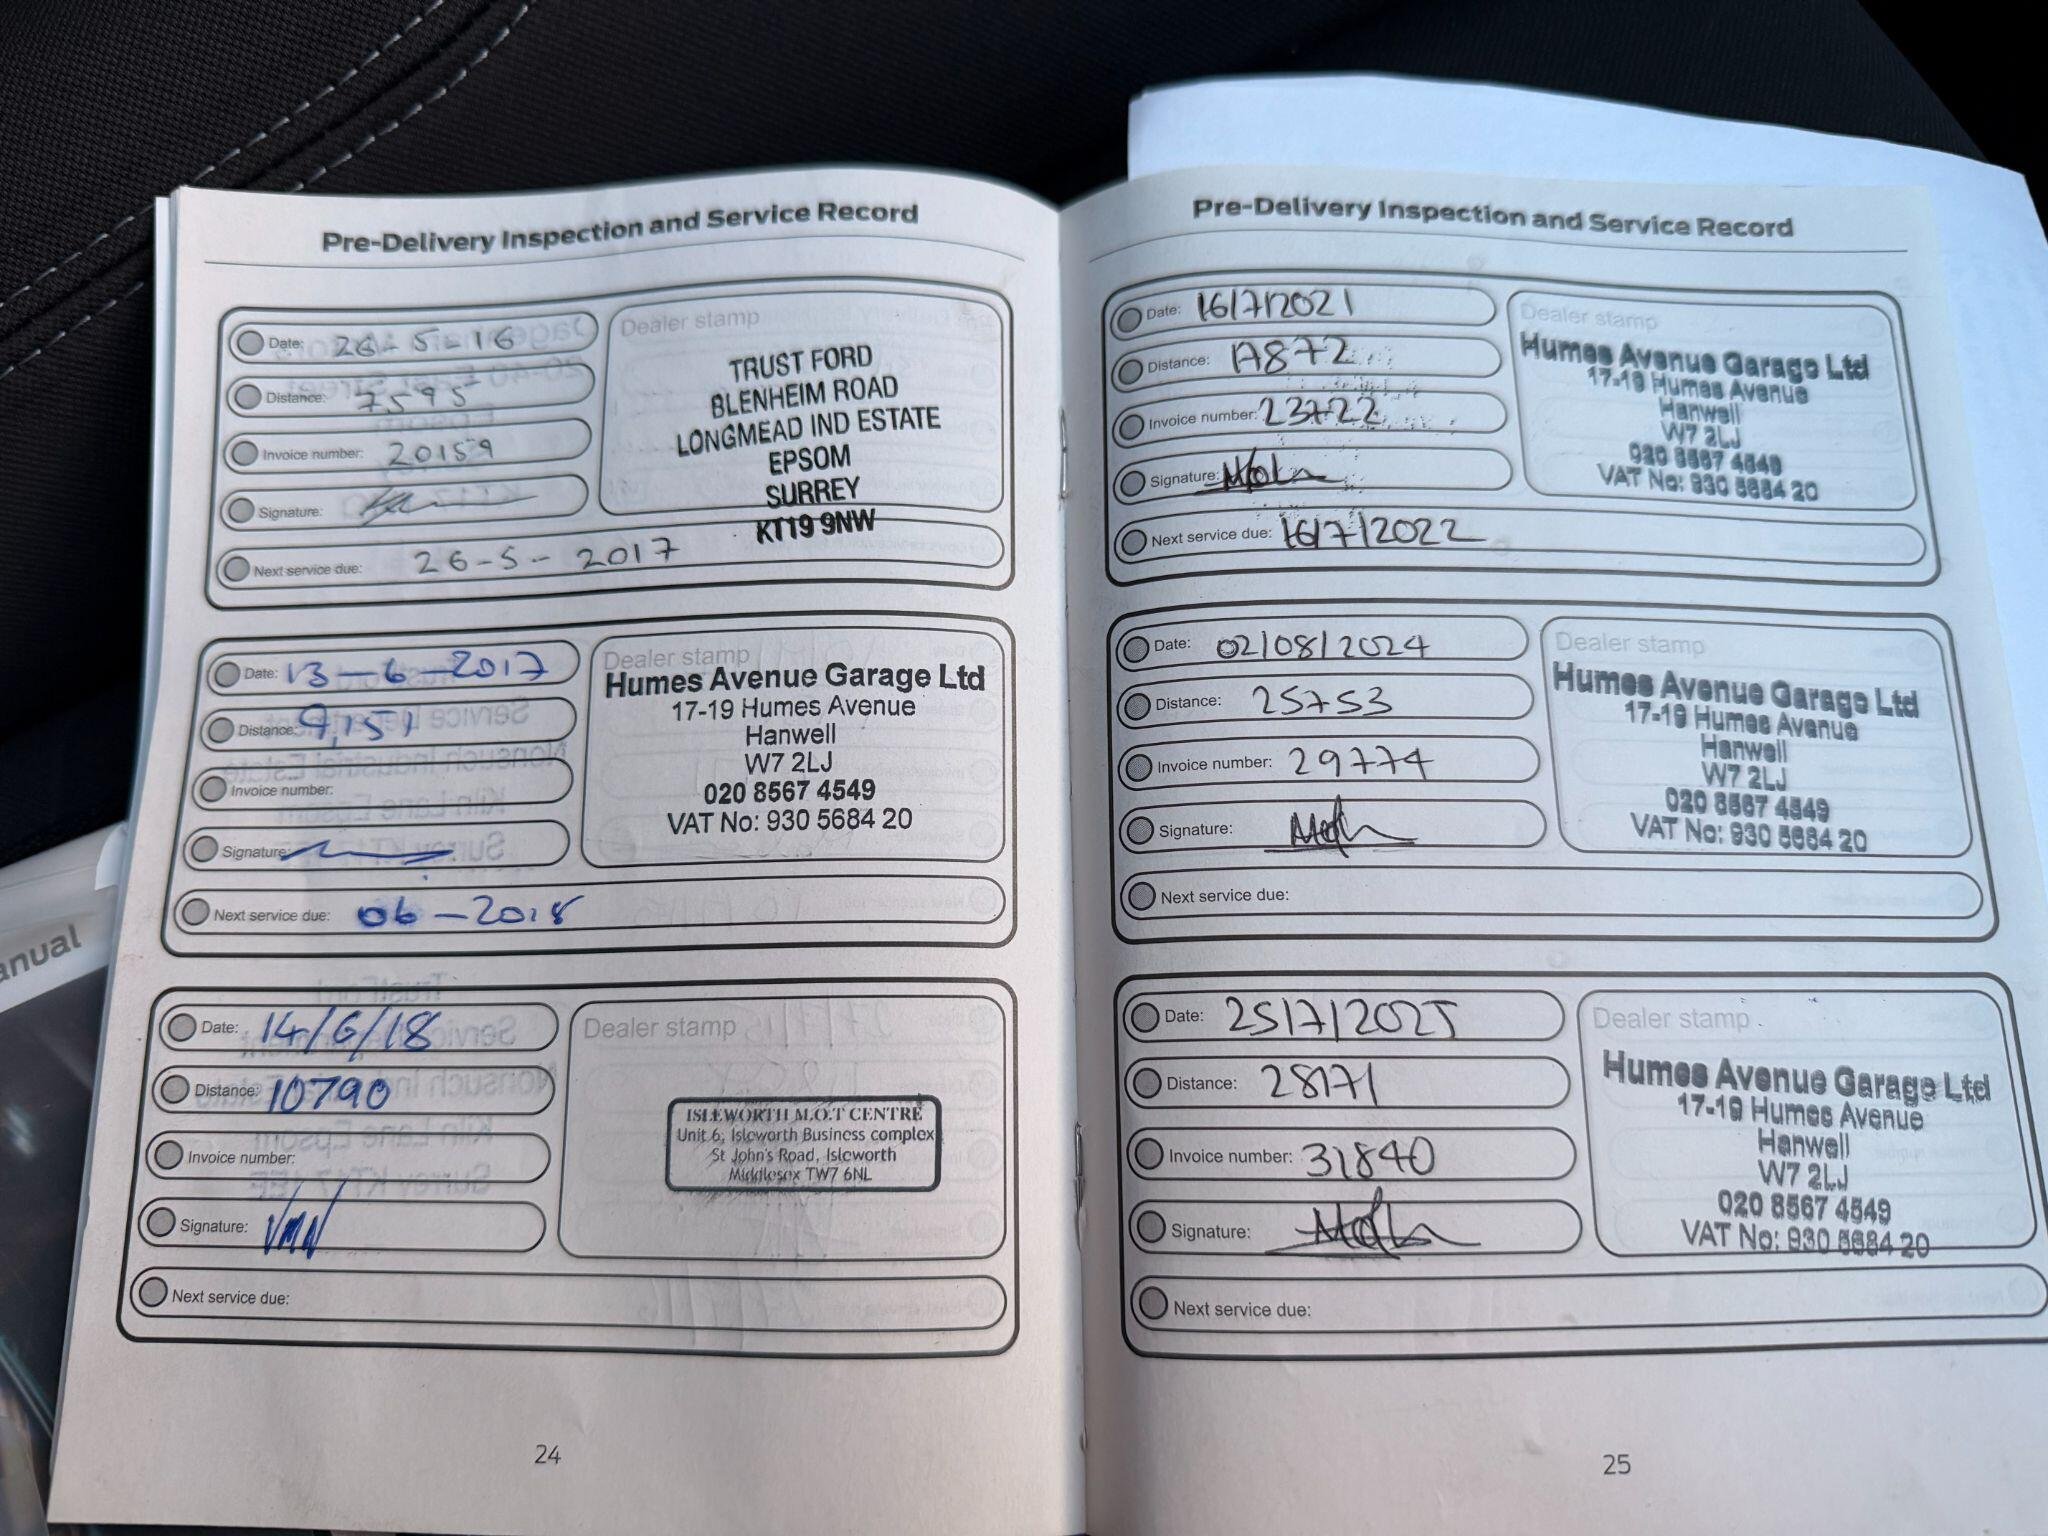 anual
Pre-Delivery Inspection and Service Record
Date: 26-5-16
Distance: 7595
Invoice number: 20159
Signature:
Next service due: 26-5-2017
Dealer stamp
TRUST FORD
BLENHEIM ROAD
LONGMEAD IND ESTATE
EPSOM
SURREY
KT19 9NW
Date: 13-6-2017
Distance: 9,151
Invoice number:
Signature:
Next service due: 06-2018
Dealer stamp
Humes Avenue Garage Ltd
17-19 Humes Avenue
Hanwell
W7 2LJ
020 8567 4549
VAT No: 930 5684 20
Date: 14/6/18
Distance: 10790
Invoice number:
Signature:
Next service due:
Dealer stamp
ISLEWORTH M.O.T CENTRE
Unit 6, Isleworth Business complex
St John's Road, Isleworth
Middlesex TW7 6NL
24
Pre-Delivery Inspection and Service Record
Date: 16/7/2021
Distance: 17872
Invoice number: 23722
Signature:
Next service due: 16/7/2022
Dealer stamp
Humes Avenue Garage Ltd
17-19 Humes Avenue
Hanwell
W7 2LJ
020 8567 4549
VAT No: 930 5684 20
Date: 02/08/2024
Distance: 25753
Invoice number: 29774
Signature:
Next service due:
Dealer stamp
Humes Avenue Garage Ltd
17-19 Humes Avenue
Hanwell
W7 2LJ
020 8567 4549
VAT No: 930 5684 20
Date: 25/7/2025
Distance: 28171
Invoice number: 31840
Signature:
Next service due:
Dealer stamp
Humes Avenue Garage Ltd
17-19 Humes Avenue
Hanwell
W7 2LJ
020 8567 4549
VAT No: 930 5684 20
25